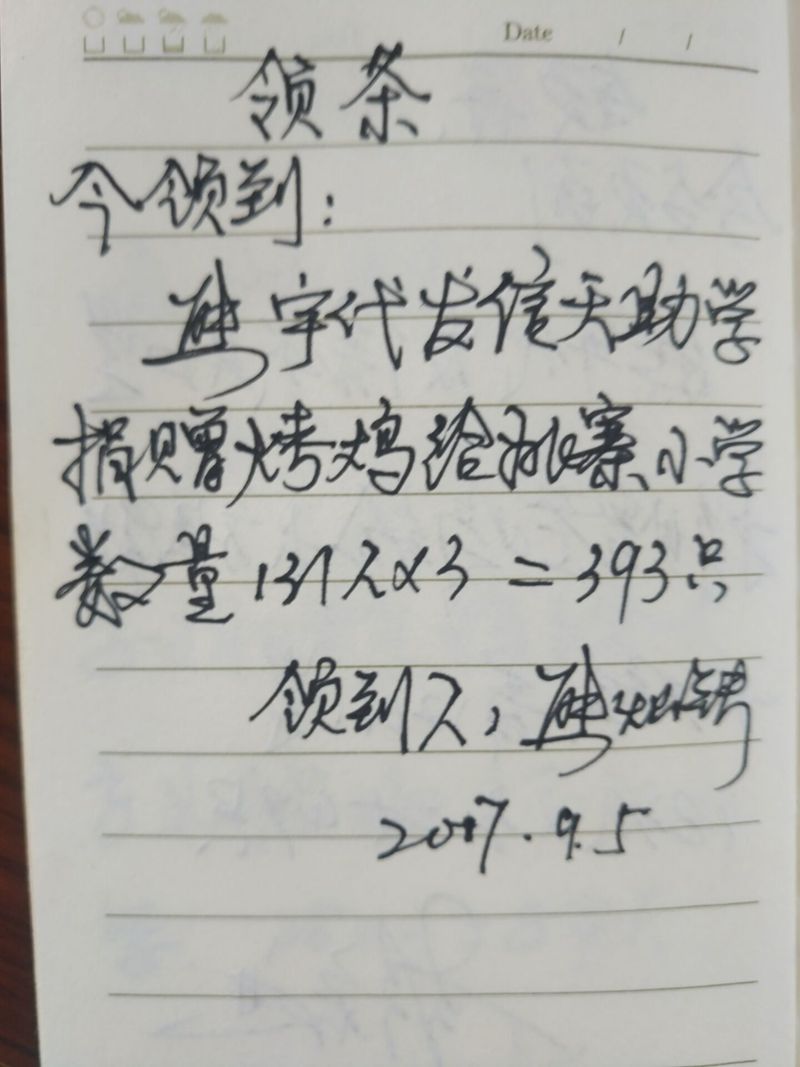 Date / /
领条
今领到:
熊宇代发信天助学
捐赠烤鸡给桃寨小学
数量131人×3=393只
领到人:熊灿
2017.9.5